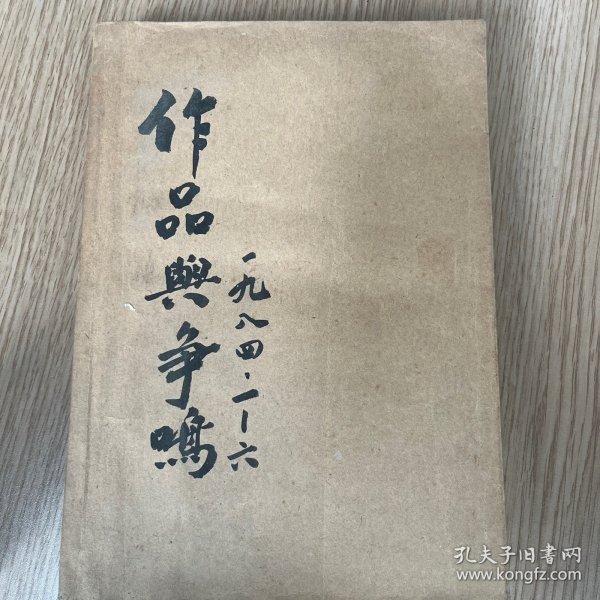 作品與争鳴
一九八四·一—六
孔夫子旧书网
www.kongfz.com